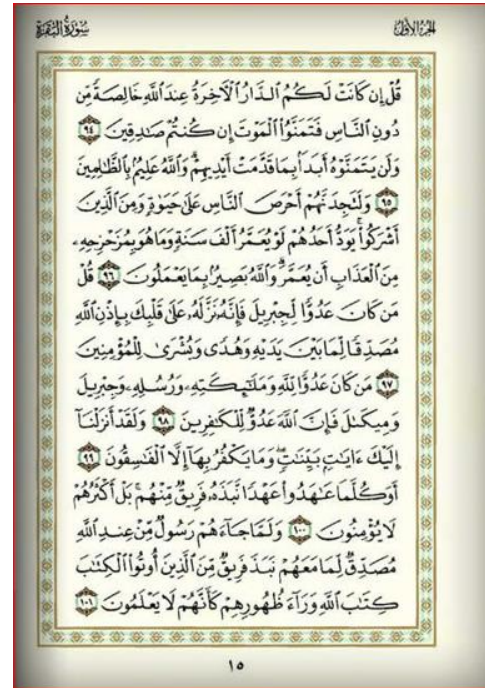 الجزء الأول
سورة البقرة
قُلْ إِن كَانَتْ لَكُمُ ٱلدَّارُ ٱلْـَٔاخِرَةُ عِندَ ٱللَّهِ خَالِصَةً مِّن
دُونِ ٱلنَّاسِ فَتَمَنَّوُا۟ ٱلْمَوْتَ إِن كُنتُمْ صَـٰدِقِينَ ٩٤
وَلَن يَتَمَنَّوْهُ أَبَدًۢا بِمَا قَدَّمَتْ أَيْدِيهِمْ ۗ وَٱللَّهُ عَلِيمٌۢ بِٱلظَّـٰلِمِينَ
٩٥ وَلَتَجِدَنَّهُمْ أَحْرَصَ ٱلنَّاسِ عَلَىٰ حَيَوٰةٍ وَمِنَ ٱلَّذِينَ
أَشْرَكُوا۟ ۚ يَوَدُّ أَحَدُهُمْ لَوْ يُعَمَّرُ أَلْفَ سَنَةٍ وَمَا هُوَ بِمُزَحْزِحِهِۦ
مِنَ ٱلْعَذَابِ أَن يُعَمَّرَ ۗ وَٱللَّهُ بَصِيرٌۢ بِمَا يَعْمَلُونَ ٩٦ قُلْ
مَن كَانَ عَدُوًّا لِّجِبْرِيلَ فَإِنَّهُۥ نَزَّلَهُۥ عَلَىٰ قَلْبِكَ بِإِذْنِ ٱللَّهِ
مُصَدِّقًا لِّمَا بَيْنَ يَدَيْهِ وَهُدًى وَبُشْرَىٰ لِلْمُؤْمِنِينَ
٩٧ مَن كَانَ عَدُوًّا لِّلَّهِ وَمَلَـٰٓئِكَتِهِۦ وَرُسُلِهِۦ وَجِبْرِيلَ
وَمِيكَىٰلَ فَإِنَّ ٱللَّهَ عَدُوٌّ لِّلْكَـٰفِرِينَ ٩٨ وَلَقَدْ أَنزَلْنَآ
إِلَيْكَ ءَايَـٰتٍۭ بَيِّنَـٰتٍ ۖ وَمَا يَكْفُرُ بِهَآ إِلَّا ٱلْفَـٰسِقُونَ ٩٩
أَوَكُلَّمَا عَـٰهَدُوا۟ عَهْدًا نَّبَذَهُۥ فَرِيقٌ مِّنْهُم ۚ بَلْ أَكْثَرُهُمْ
لَا يُؤْمِنُونَ ١٠٠ وَلَمَّا جَآءَهُمْ رَسُولٌ مِّنْ عِندِ ٱللَّهِ
مُصَدِّقٌ لِّمَا مَعَهُمْ نَبَذَ فَرِيقٌ مِّنَ ٱلَّذِينَ أُوتُوا۟ ٱلْكِتَـٰبَ
كِتَـٰبَ ٱللَّهِ وَرَآءَ ظُهُورِهِمْ كَأَنَّهُمْ لَا يَعْلَمُونَ ١٠١
١٥